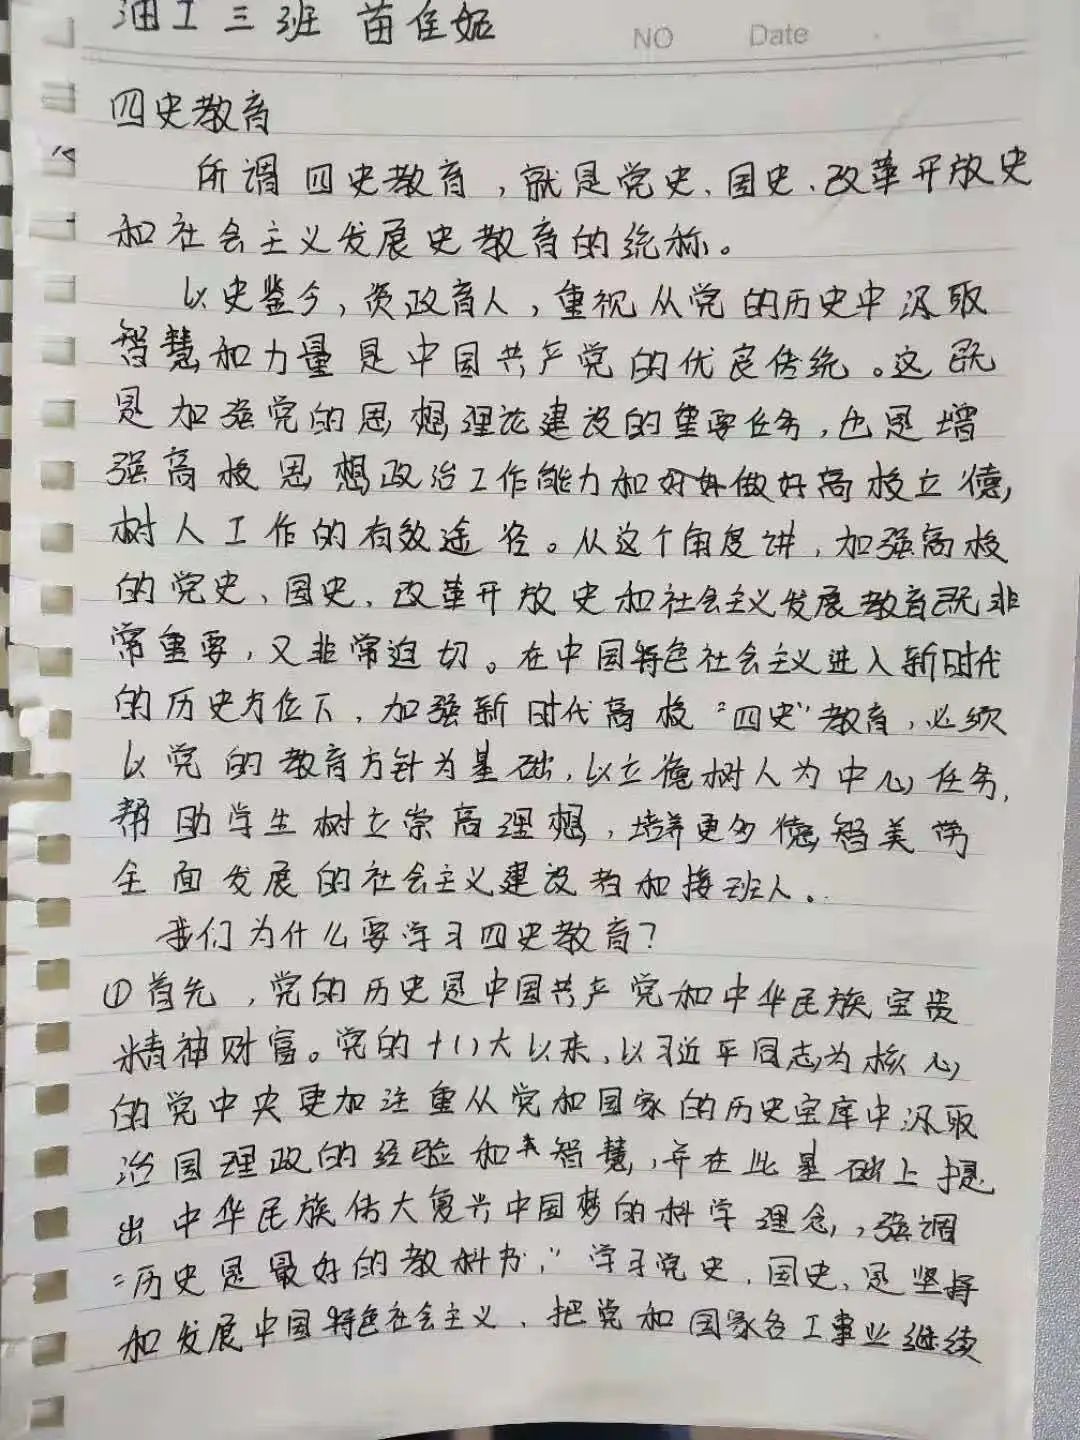 油工三班 苗佳妮
NO Date
四史教育
所谓四史教育，就是党史、国史、改革开放史
和社会主义发展史教育的统称。
以史鉴今，资政育人，重视从党的历史中汲取
智慧和力量是中国共产党的优良传统。这既
是加强党的思想理论建设的重要任务，也是增
强高校思想政治工作能力和做好高校立德
树人工作的有效途径。从这个角度讲，加强高校
的党史、国史、改革开放史和社会主义发展教育既非
常重要，又非常迫切。在中国特色社会主义进入新时代
的历史方位下，加强新时代高校“四史”教育，必须
以党的教育方针为基础，以立德树人为中心任务，
帮助学生树立崇高理想，培养更多德智美劳
全面发展的社会主义建设者和接班人。
我们为什么要学习四史教育？
①首先，党的历史是中国共产党和中华民族宝贵
精神财富。党的十八大以来，以习近平同志为核心
的党中央更加注重从党和国家的历史宝库中汲取
治国理政的经验和智慧，并在此基础上提
出中华民族伟大复兴中国梦的科学理念，，强调
“历史是最好的教科书，”学习党史、国史、是坚持
和发展中国特色社会主义、把党和国家各工事业继续